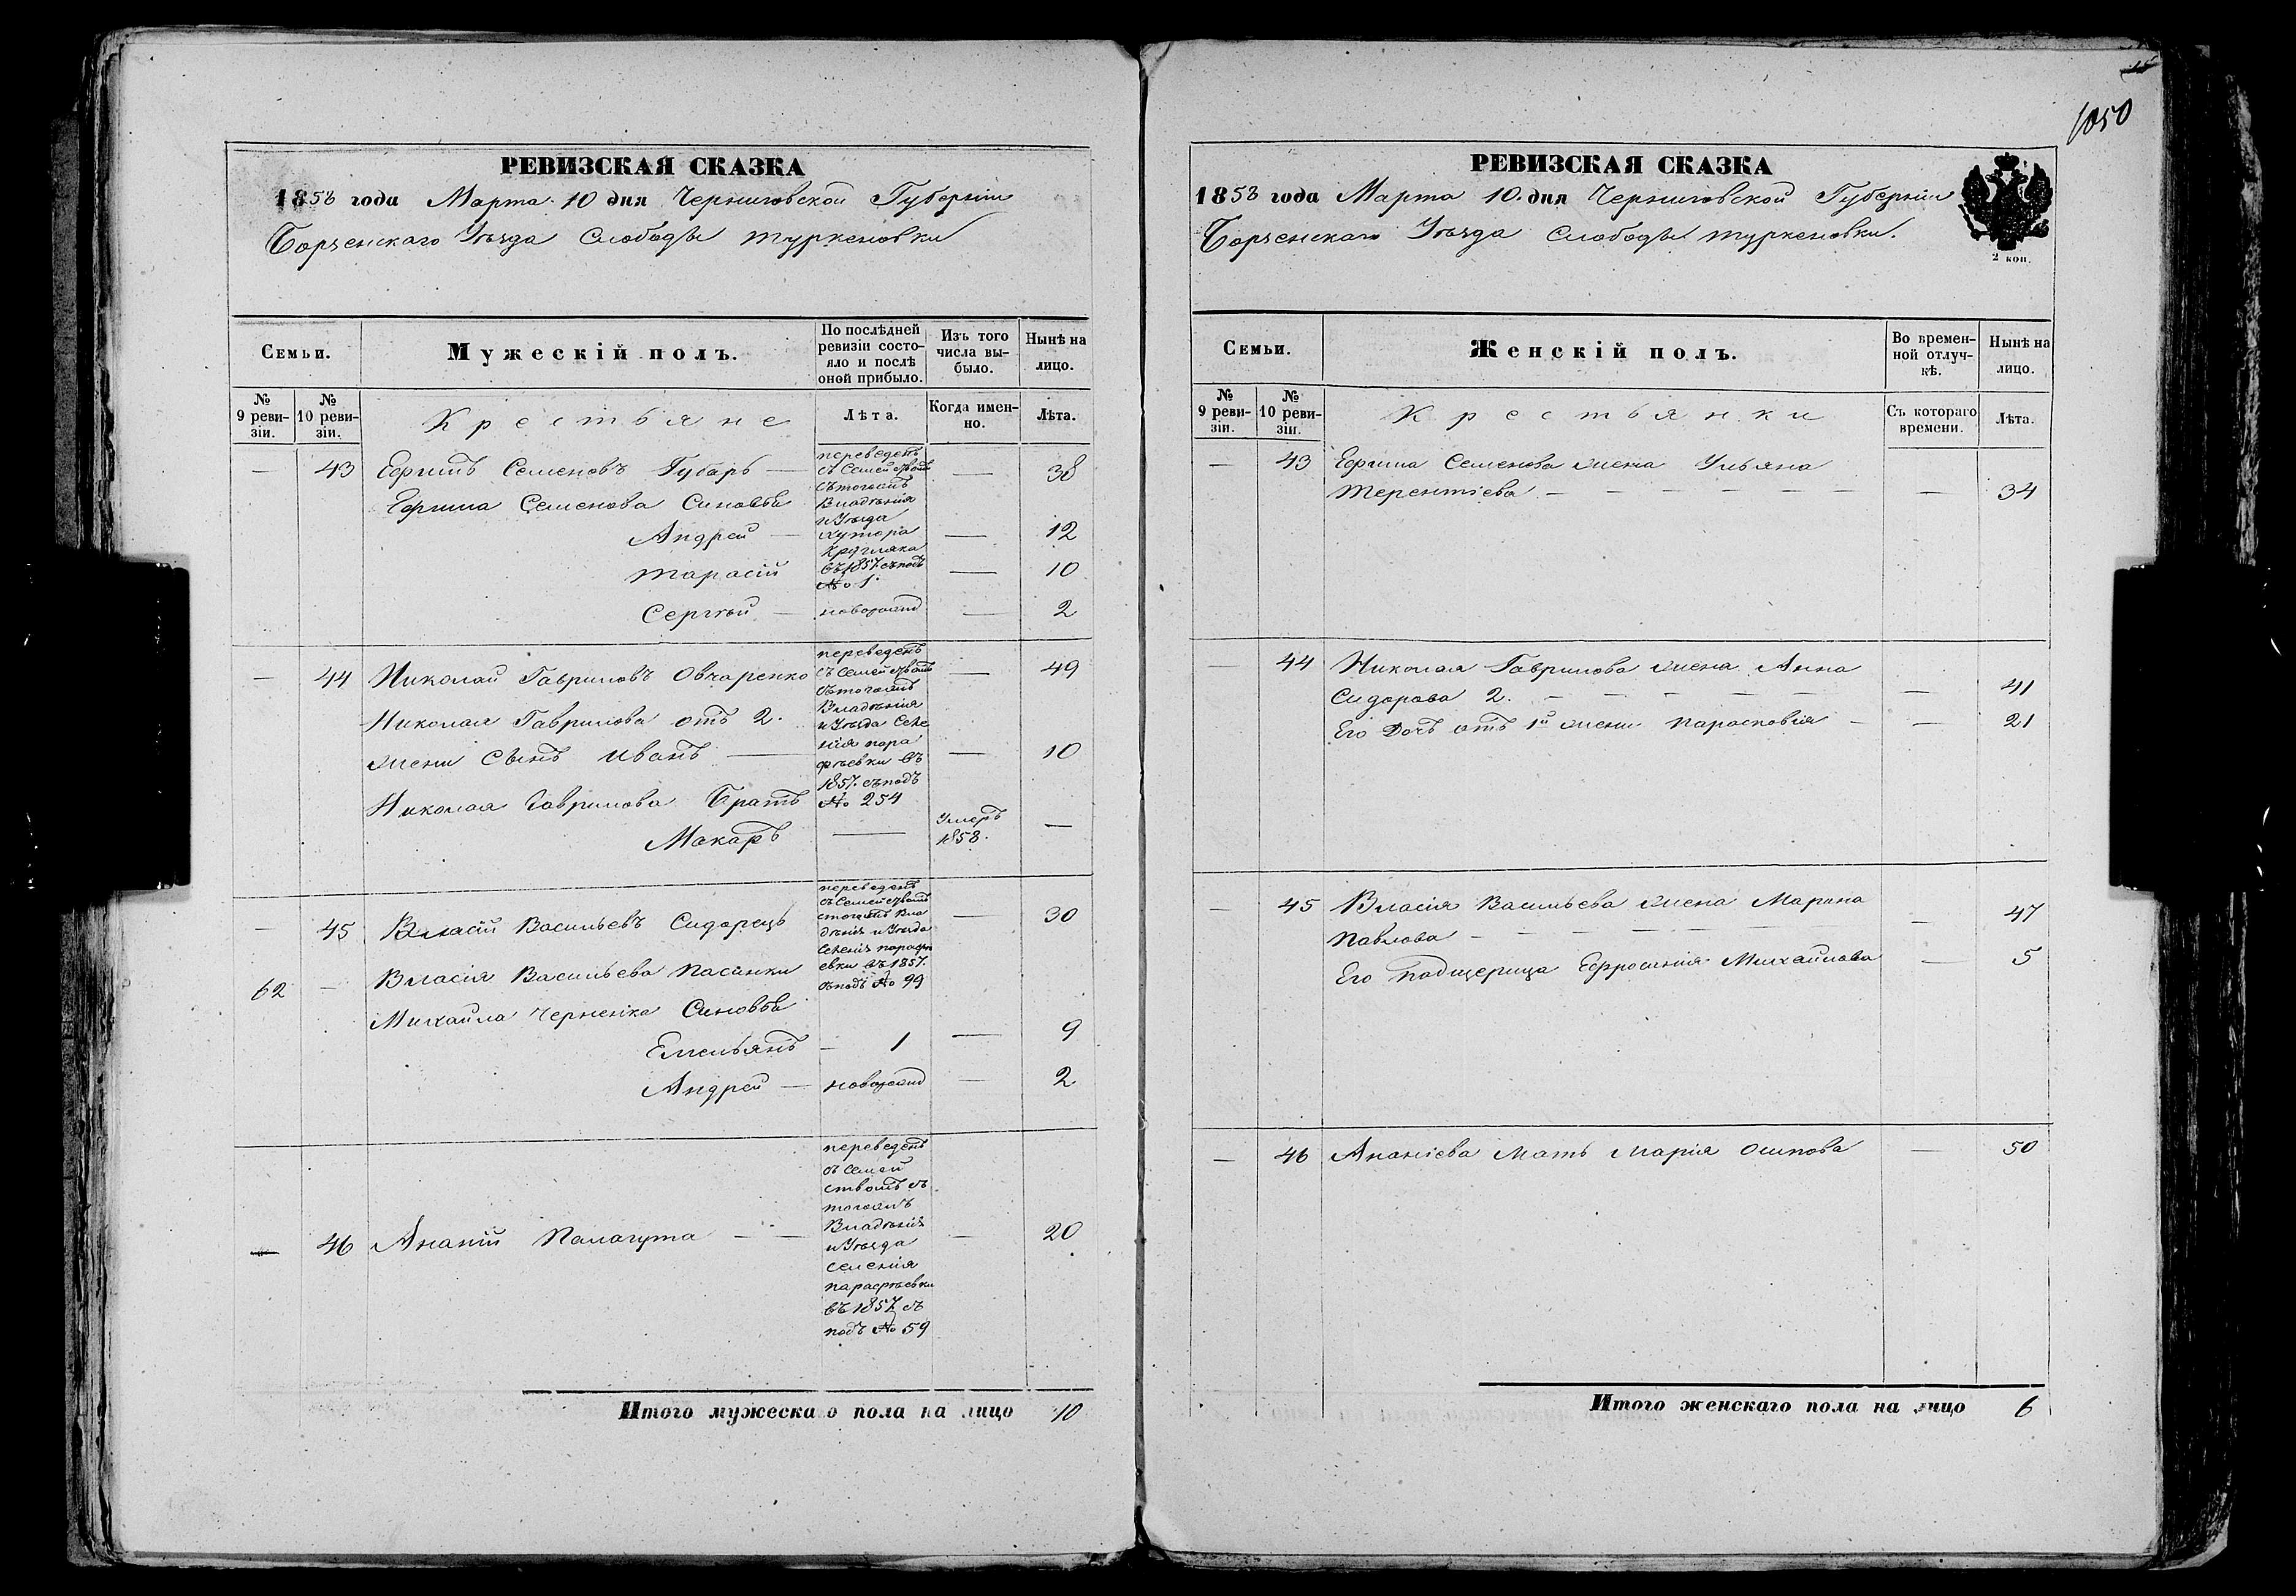 РЕВИЗСКАЯ СКАЗКА
1858 года Марта 10 дня Черниговской Губерніи
Борзенскаго Уѣзда Слободы Туркеновки
Семьи.
Мужескій полъ.
По послѣдней ревизіи состояло и послѣ оной прибыло.
Изъ того числа выбыло.
Нынѣ на лицо.
№ 9 ревизіи.
№ 10 ревизіи.
Крестьяне
Лѣта.
Когда именно.
Лѣта.
— 43 Ефимъ Семеновъ Губарь — — 38
переведенъ
съ Семействомъ
съ тогожъ
Владѣнія
и Уѣзда
хутора
Кругляка
въ 1857. съ подъ
№ 1.
Ефима Семенова Синовья
Андрей — — 12
Тарасій — 10
Сергѣй — новорожд — 2
— 44 Николай Гавриловъ Овчаренко — 49
переведенъ
съ Семействомъ
съ тогожъ
Владѣнія
и Уѣзда Селе
нія пара
фѣевки въ
1857. съ подъ
№ 254
Николая Гаврилова отъ 2.
жени Сынъ Иванъ — — 10
Николая Гаврилова Братъ
Макаръ — Умеръ 1853. —
— 45 Власій Васильевъ Сидорецъ — 30
переведенъ
съ Семействомъ
стогожъ Вла
дѣнія и Уѣзда
Селенія парафѣ
евки въ 1857.
съ подъ № 99
62 — Власія Васильева Пасинки
Михайла Черненка Синовья
Емельянъ — 1 — 9
Андрей — новорожд — 2
— 46 Ананій Палагута — — — 20
переведенъ
съ Семей
ствомъ съ
тогожъ
Владѣнія
и Уѣзда
селенія
парафѣевки
въ 1857 съ
подъ № 59
Итого мужескаго пола на лицо 10
1050
РЕВИЗСКАЯ СКАЗКА
1858 года Марта 10. дня Черниговской Губерніи
Борзенскаго Уѣзда Слободы Туркеновки.
2 коп.
Семьи.
Женскій полъ.
Во временной отлучкѣ.
Нынѣ на лицо.
№ 9 ревизіи.
№ 10 ревизіи.
Крестьянки
Съ котораго времени.
Лѣта.
— 43 Ефима Семенова жена Ульяна
Терентіева — — — — — — — 34
— 44 Николая Гаврилова жена Анна
Сидорова 2. — — — — — — 41
Его Дочь отъ 1й жени Парасковія — — 21
— 45 Власія Васильева жена Марина
Павлова — — — — — — 47
Его падщерица Ефросинія Михайлова — 5
— 46 Ананіева Мать Марія Осипова — 50
Итого женскаго пола на лицо 6